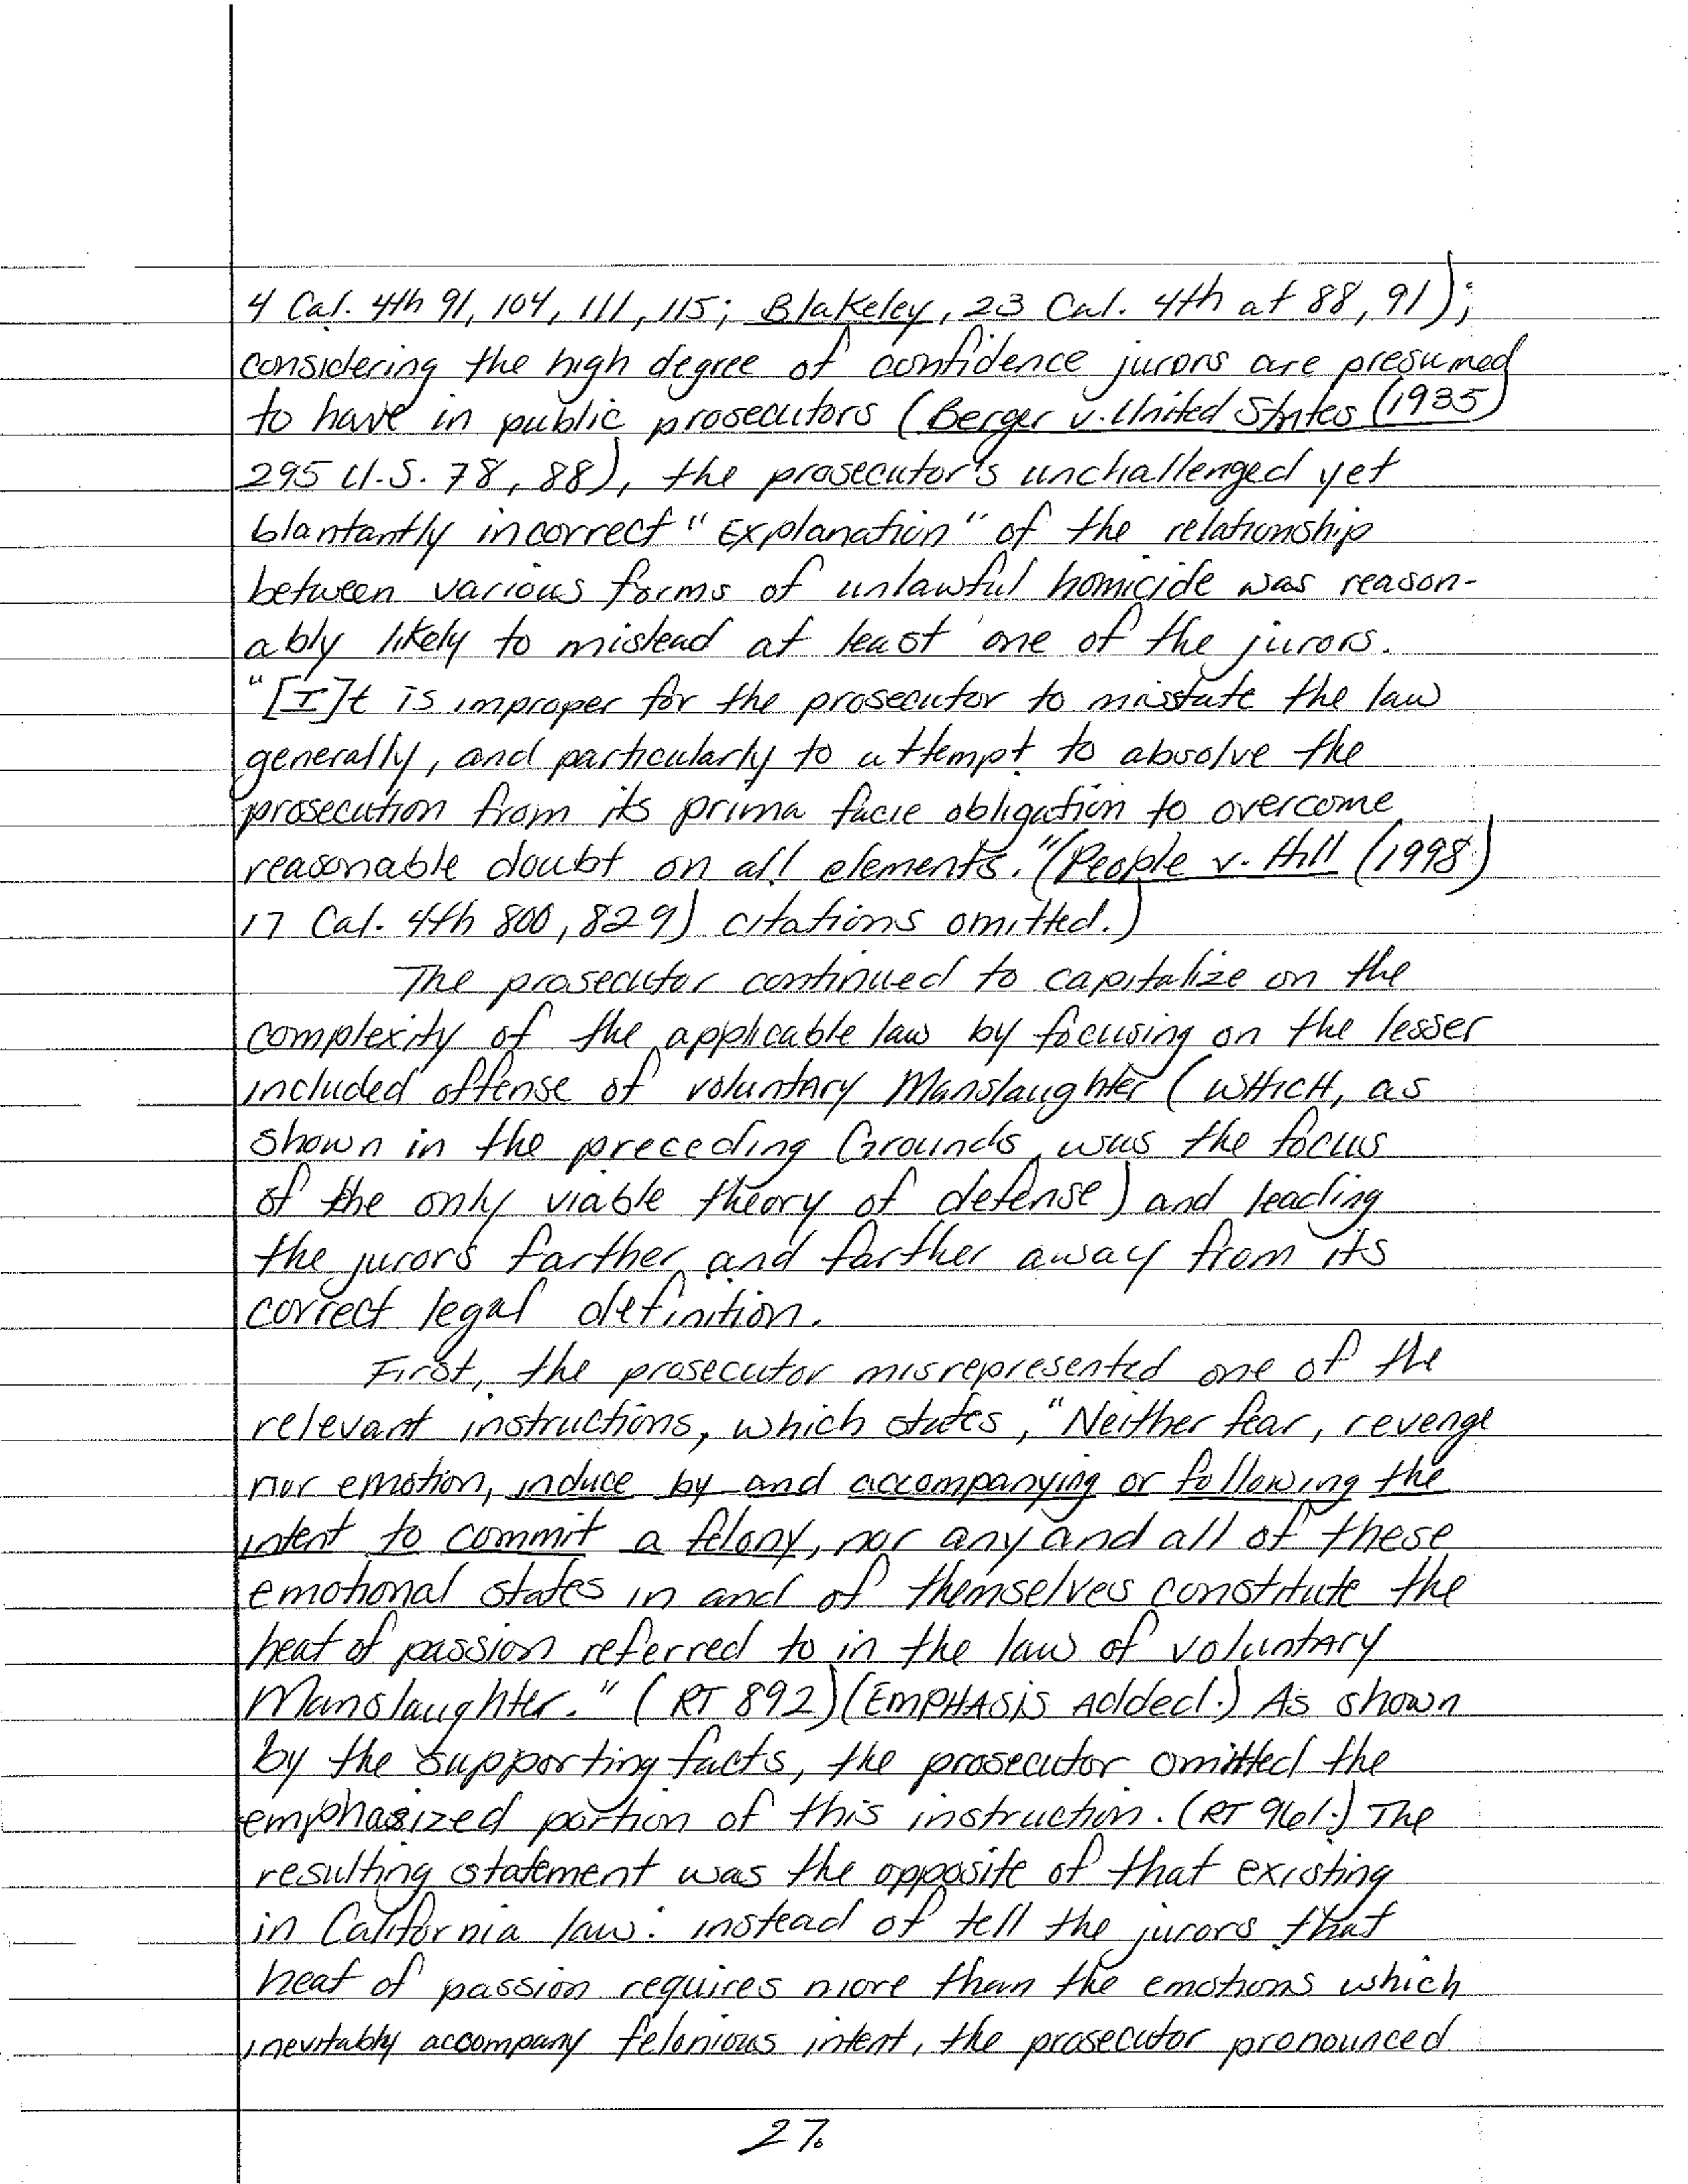 4 Cal. 4th 91, 104, 111, 115; Blakeley, 23 Cal. 4th at 88, 91);
considering the high degree of confidence jurors are presumed
to have in public prosecutors (Berger v. United States (1935)
295 U.S. 78, 88), the prosecutor's unchallenged yet
blantantly incorrect "Explanation" of the relationship
between various forms of unlawful homicide was reason-
ably likely to mislead at least one of the jurors.
"[I]t is improper for the prosecutor to misstate the law
generally, and particularly to attempt to absolve the
prosecution from its prima facie obligation to overcome
reasonable doubt on all elements." (People v. Hill (1998)
17 Cal. 4th 800, 829) citations omitted.)
The prosecutor continued to capitalize on the
complexity of the applicable law by focusing on the lesser
included offense of voluntary Manslaughter (WHICH, as
shown in the preceding Grounds, was the focus
of the only viable theory of defense) and leading
the jurors farther and farther away from its
correct legal definition.
First, the prosecutor misrepresented one of the
relevant instructions, which states, "Neither fear, revenge
nor emotion, induce by and accompanying or following the
intent to commit a felony, nor any and all of these
emotional states in and of themselves constitute the
heat of passion referred to in the law of voluntary
Manslaughter." (RT 892) (EMPHASIS Added.) As shown
by the supporting facts, the prosecutor omitted the
emphasized portion of this instruction. (RT 961.) The
resulting statement was the opposite of that existing
in California law: instead of tell the jurors that
heat of passion requires more than the emotions which
inevitably accompany felonious intent, the prosecutor pronounced
27.